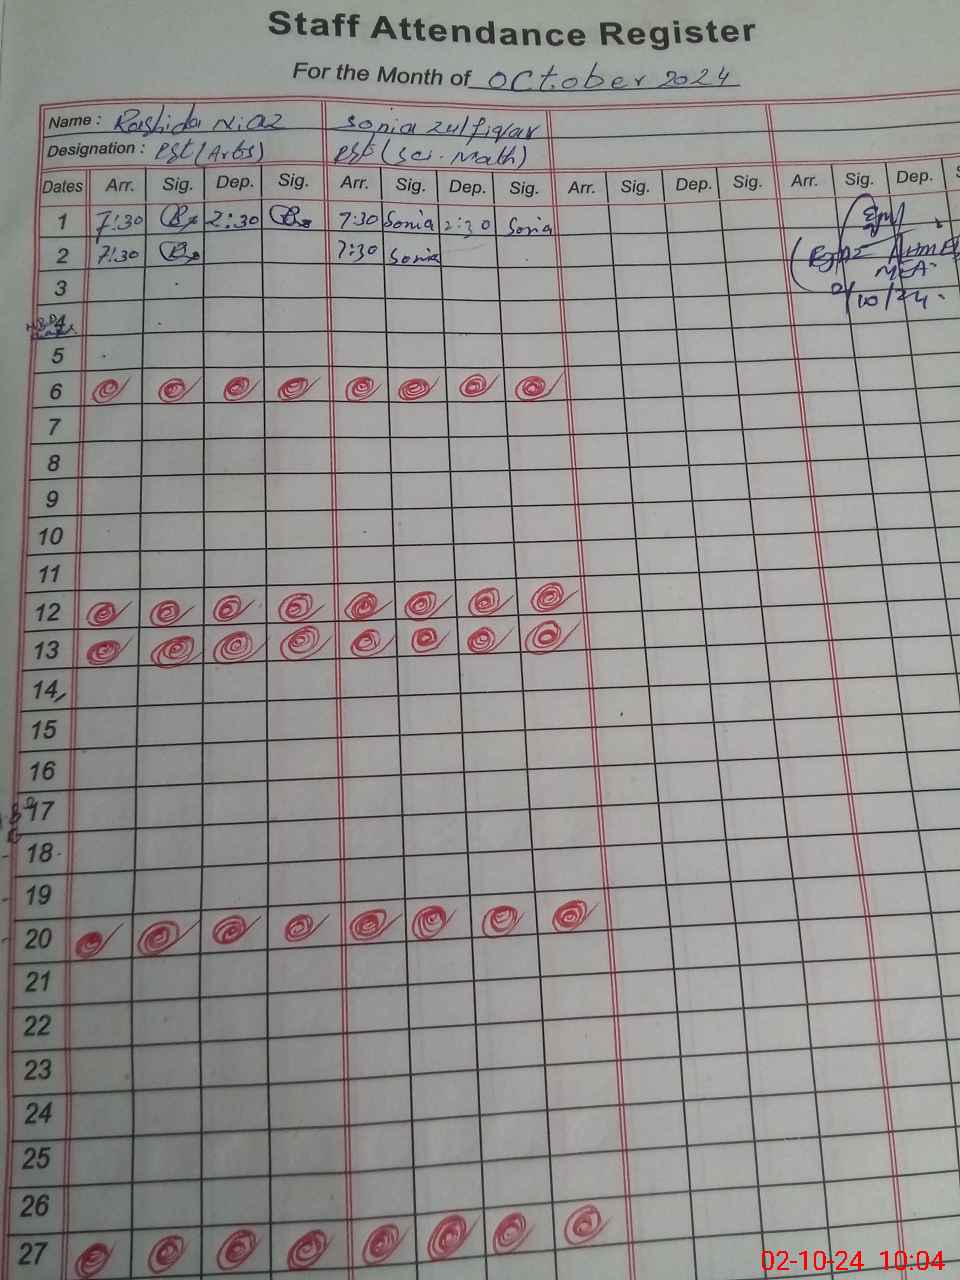 Staff Attendance Register
For the Month of October 2024
Name : Rashida Niaz Sonia Zulfiqar
Designation : PST (Arts) PST (Sci. Math)
Dates Arr. Sig. Dep. Sig. Arr. Sig. Dep. Sig. Arr. Sig. Dep. Sig. Arr. Sig. Dep.
1 7:30 2:30 7:30 Sonia 2:30 Sonia
2 7:30 7:30 Sonia
MEA
2/10/24
3
4
5
6
7
8
9
10
11
12
13
14
15
16
17
18
19
20
21
22
23
24
25
26
27
02-10-24 10:04